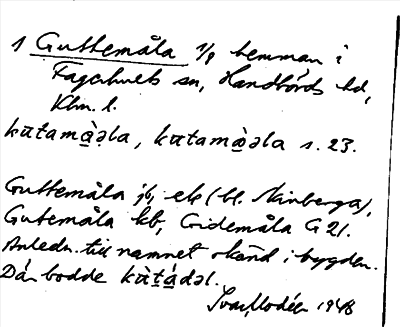 1 Guttemåla 1/8 hemman i
Fagerhults sn, Handbörds hd,
Klm. l.
kʉtamà̱ǝla, kʉtamà̱ǝla s. 23.
Guttemåla jb, ek (bl. Skinberga),
Gutemåla kb, Gidemåla G 21.
Anledn. till namnet okänd i bygden.
Där bodde kʉ̀ṯá̱dǝl.
Ivar Modéer 1948